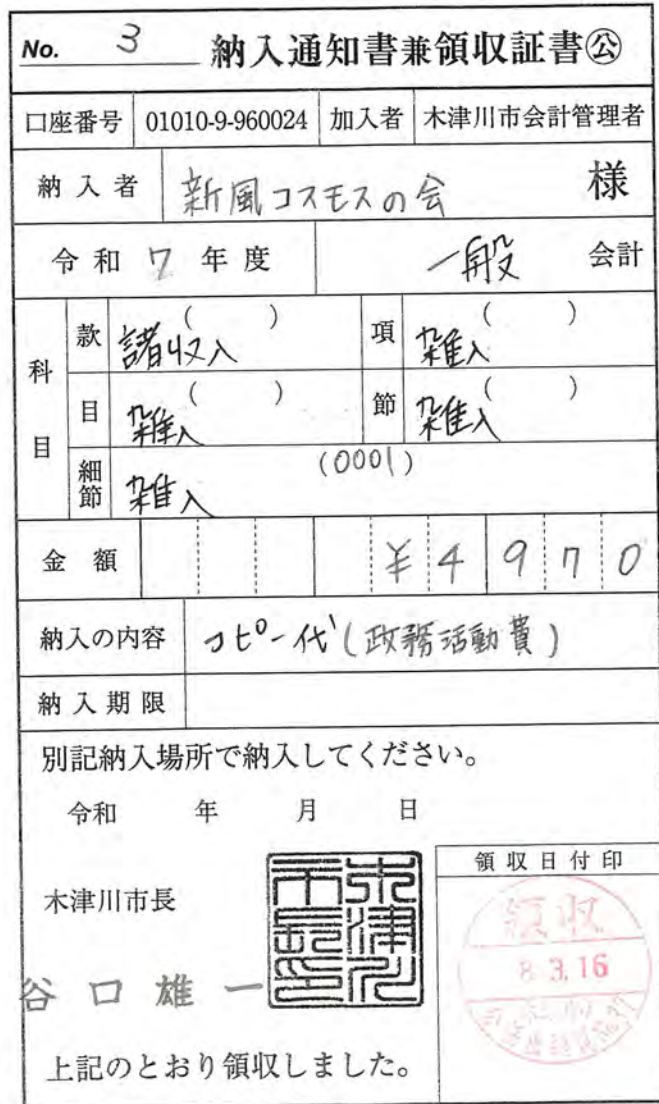 No. 3 納入通知書兼領収証書㊤公
口座番号 01010-9-960024 加入者 木津川市会計管理者
納入者 新風コスモスの会 様
令和 7 年度 一般 会計
科目 款 諸収入 ( ) 項 雑入 ( )
目 雑入 ( ) 節 雑入 ( )
細節 雑入 (0001)
金額 ¥4970
納入の内容 コピー代(政務活動費)
納入期限
別記納入場所で納入してください。
令和 年 月 日
領収日付印
木津川市長
木津川市長印
谷口雄一
領収
8.3.16
上記のとおり領収しました。